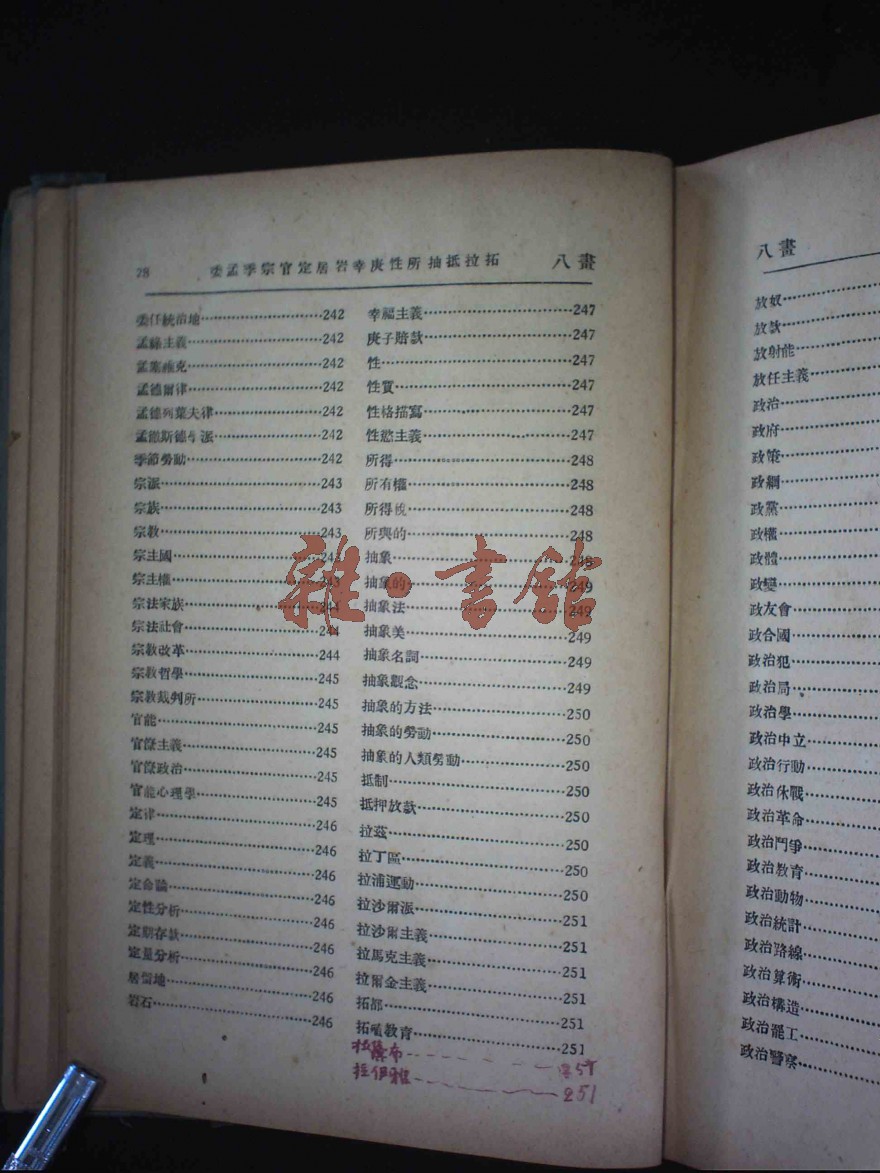 28 委孟季宗官定居岩幸庚性所抽抵拉拓 八畫
委任統治地……242
孟祿主義……242
孟塞維克……242
孟德爾律……242
孟德列葉夫律……242
孟徹斯德學派……242
季節勞動……242
宗派……243
宗族……243
宗教……243
宗主國……243
宗主權……243
宗法家族……244
宗法社會……244
宗教改革……244
宗教哲學……245
宗教裁判所……245
官能……245
官僚主義……245
官僚政治……245
官能心理學……245
定律……246
定理……246
定義……246
定命論……246
定性分析……246
定期存款……246
定量分析……246
居留地……246
岩石……246
幸福主義……247
庚子賠款……247
性……247
性質……247
性格描寫……247
性慾主義……247
所得……248
所有權……248
所得稅……248
所與的……248
抽象……248
抽象的……249
抽象法……249
抽象美……249
抽象名詞……249
抽象觀念……249
抽象的方法……250
抽象的勞動……250
抽象的人類勞動……250
抵制……250
抵押放款……250
拉茲……250
拉丁區……250
拉浦運動……250
拉沙爾派……251
拉沙爾主義……251
拉馬克主義……251
拉爾金主義……251
拓都……251
拓殖教育……251
拉伊雅……251
雜·書館
八畫
放奴……
放款……
放射能……
放任主義……
政治……
政府……
政策……
政綱……
政黨……
政權……
政體……
政變……
政友會……
政合國……
政治犯……
政治局……
政治學……
政治中立……
政治行動……
政治休戰……
政治革命……
政治鬥爭……
政治教育……
政治動物……
政治統計……
政治路線……
政治算術……
政治構造……
政治罷工……
政治警察……